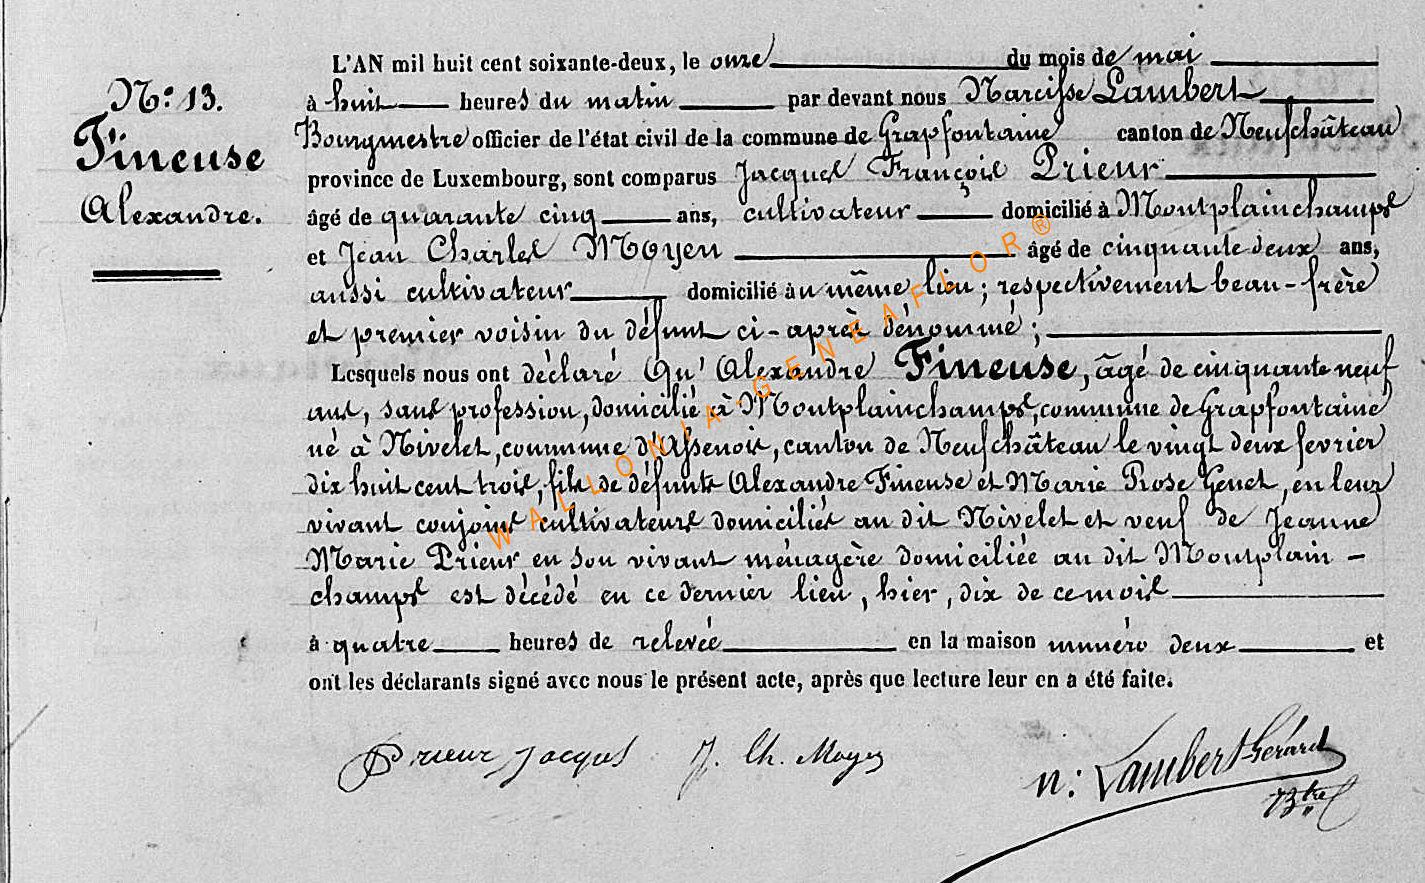 L'AN mil huit cent soixante-deux, le onze du mois de mai
N.o 13.
à huit heures du matin par devant nous Narcisse Lambert
Fineuse
Bourgmestre officier de l'état civil de la commune de Grapfontaine canton de Neufchâteau
province de Luxembourg, sont comparus Jacques François Prieur
Alexandre.
âgé de quarante cinq ans, cultivateur domicilié à Montplainchamps
et Jean Charles Moyen âgé de cinquante deux ans,
aussi cultivateur domicilié au même lieu ; respectivement beau-frère
et premier voisin du défunt ci-après dénommé ;
Lesquels nous ont déclaré Qu'Alexandre Fineuse, âgé de cinquante neuf
ans, sans profession, domicilié à Montplainchamps, commune de Grapfontaine
né à Nivelet, commune d'Assenois, canton de Neufchâteau le vingt deux fevrier
dix huit cent trois, fils de défunts Alexandre Fineuse et Marie Rose Genet, en leur
vivant conjoins cultivateurs domiciliés au dit Nivelet et veuf de Jeanne
Marie Prieur en son vivant ménagère domiciliée au dit Montplain-
champs est décédé en ce dernier lieu, hier, dix de ce mois
à quatre heures de relevée en la maison numéro deux et
ont les déclarants signé avec nous le présent acte, après que lecture leur en a été faite.
Prieur Jacques J. Ch. Moyen n: Lambert-Gérard
Btre
WALLONIA-GENEAFLOR®